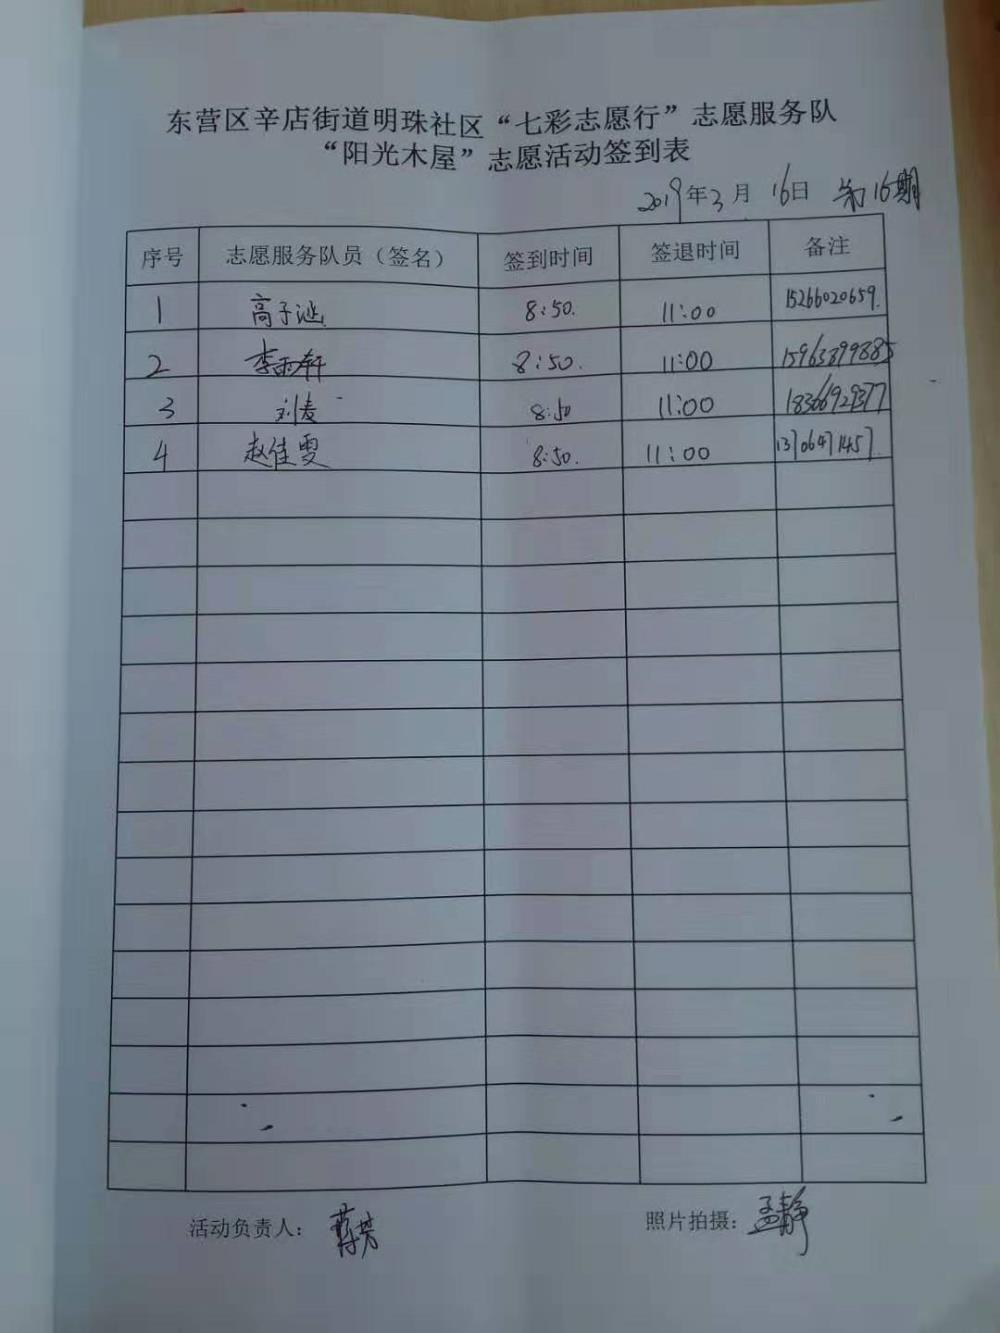 东营区辛店街道明珠社区“七彩志愿行”志愿服务队
“阳光木屋”志愿活动签到表
2019年3月16日 第16期
序号 志愿服务队员（签名） 签到时间 签退时间 备注
1 高子涵 8:50. 11:00 15266020659.
2 李雨轩 8:50. 11:00 15963899885
3 刘麦 8:50 11:00 18366929377
4 赵佳雯 8:50. 11:00 13706471457.
活动负责人： 蒋芳 照片拍摄： 孟静